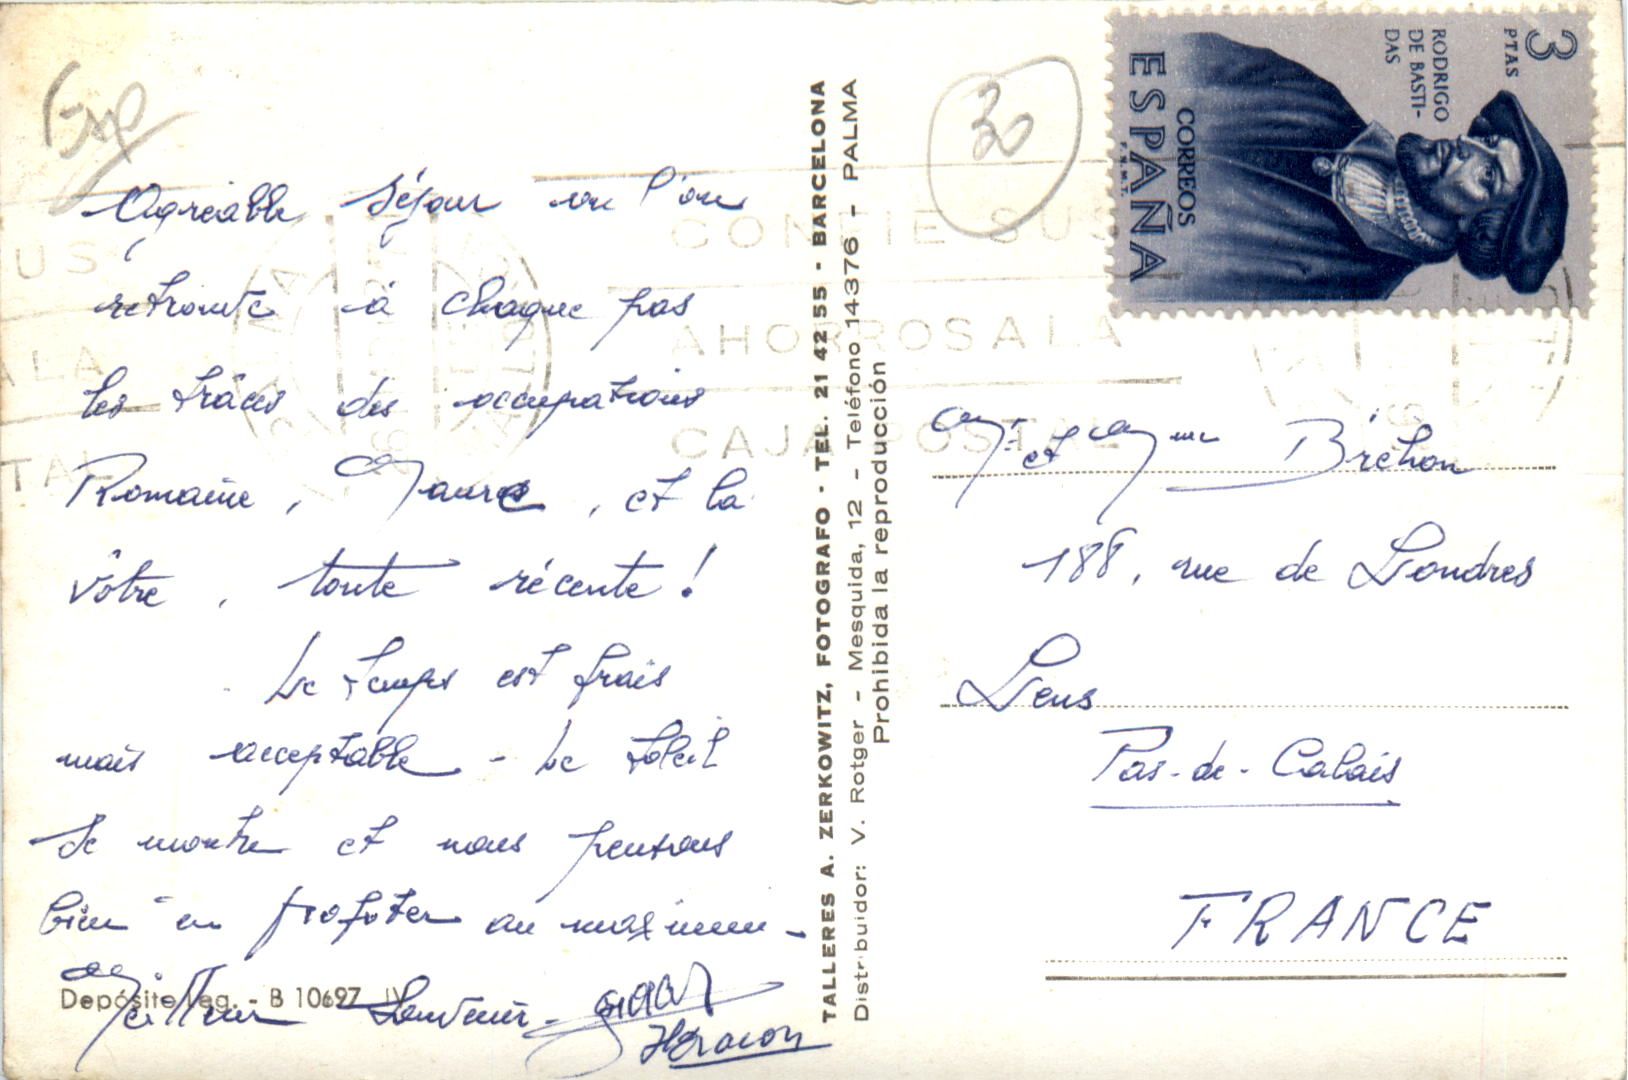 Esp
Agréable séjour où l'on
retrouve à chaque pas
les trâces des occupations
Romaine, Maure, et la
vôtre, toute récente !
Le temps est frais
mais acceptable - Le soleil
se montre et nous pensons
bien en profiter au maximum -
Meilleur Souvenir -
Depósito Leg. - B 10697 IV
TALLERES A. ZERKOWITZ, FOTOGRAFO - TEL. 21 42 55 - BARCELONA
Distribuidor: V. Rotger - Mesquida, 12 - Teléfono 14376 - PALMA
Prohibida la reproducción
30
3
PTAS
RODRIGO
DE BASTI-
DAS
CORREOS
ESPAÑA
F.N.M.T.
CONFIE SUS
AHORROS A LA
CAJA POSTAL
Mr et Mme Bréhon
188, rue de Londres
Lens
Pas-de-Calais
FRANCE